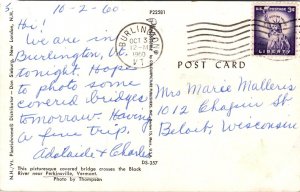 10-2-60
Hi!
We are in
Burlington, Vt.
tonight. Hope
to photo some
covered bridges
tomorrow. Having
a fine trip.
Adelaide & Charles
This picturesque covered bridge crosses the Black
River near Perkinsville, Vermont.
Photo by Thompson
D3-357
P22581
BURLINGTON
OCT 3
12-M
1960
VT.
3¢
LIBERTY
POST CARD
Mrs Marie Malleris
1012 Chapin St
Beloit, Wisconsin